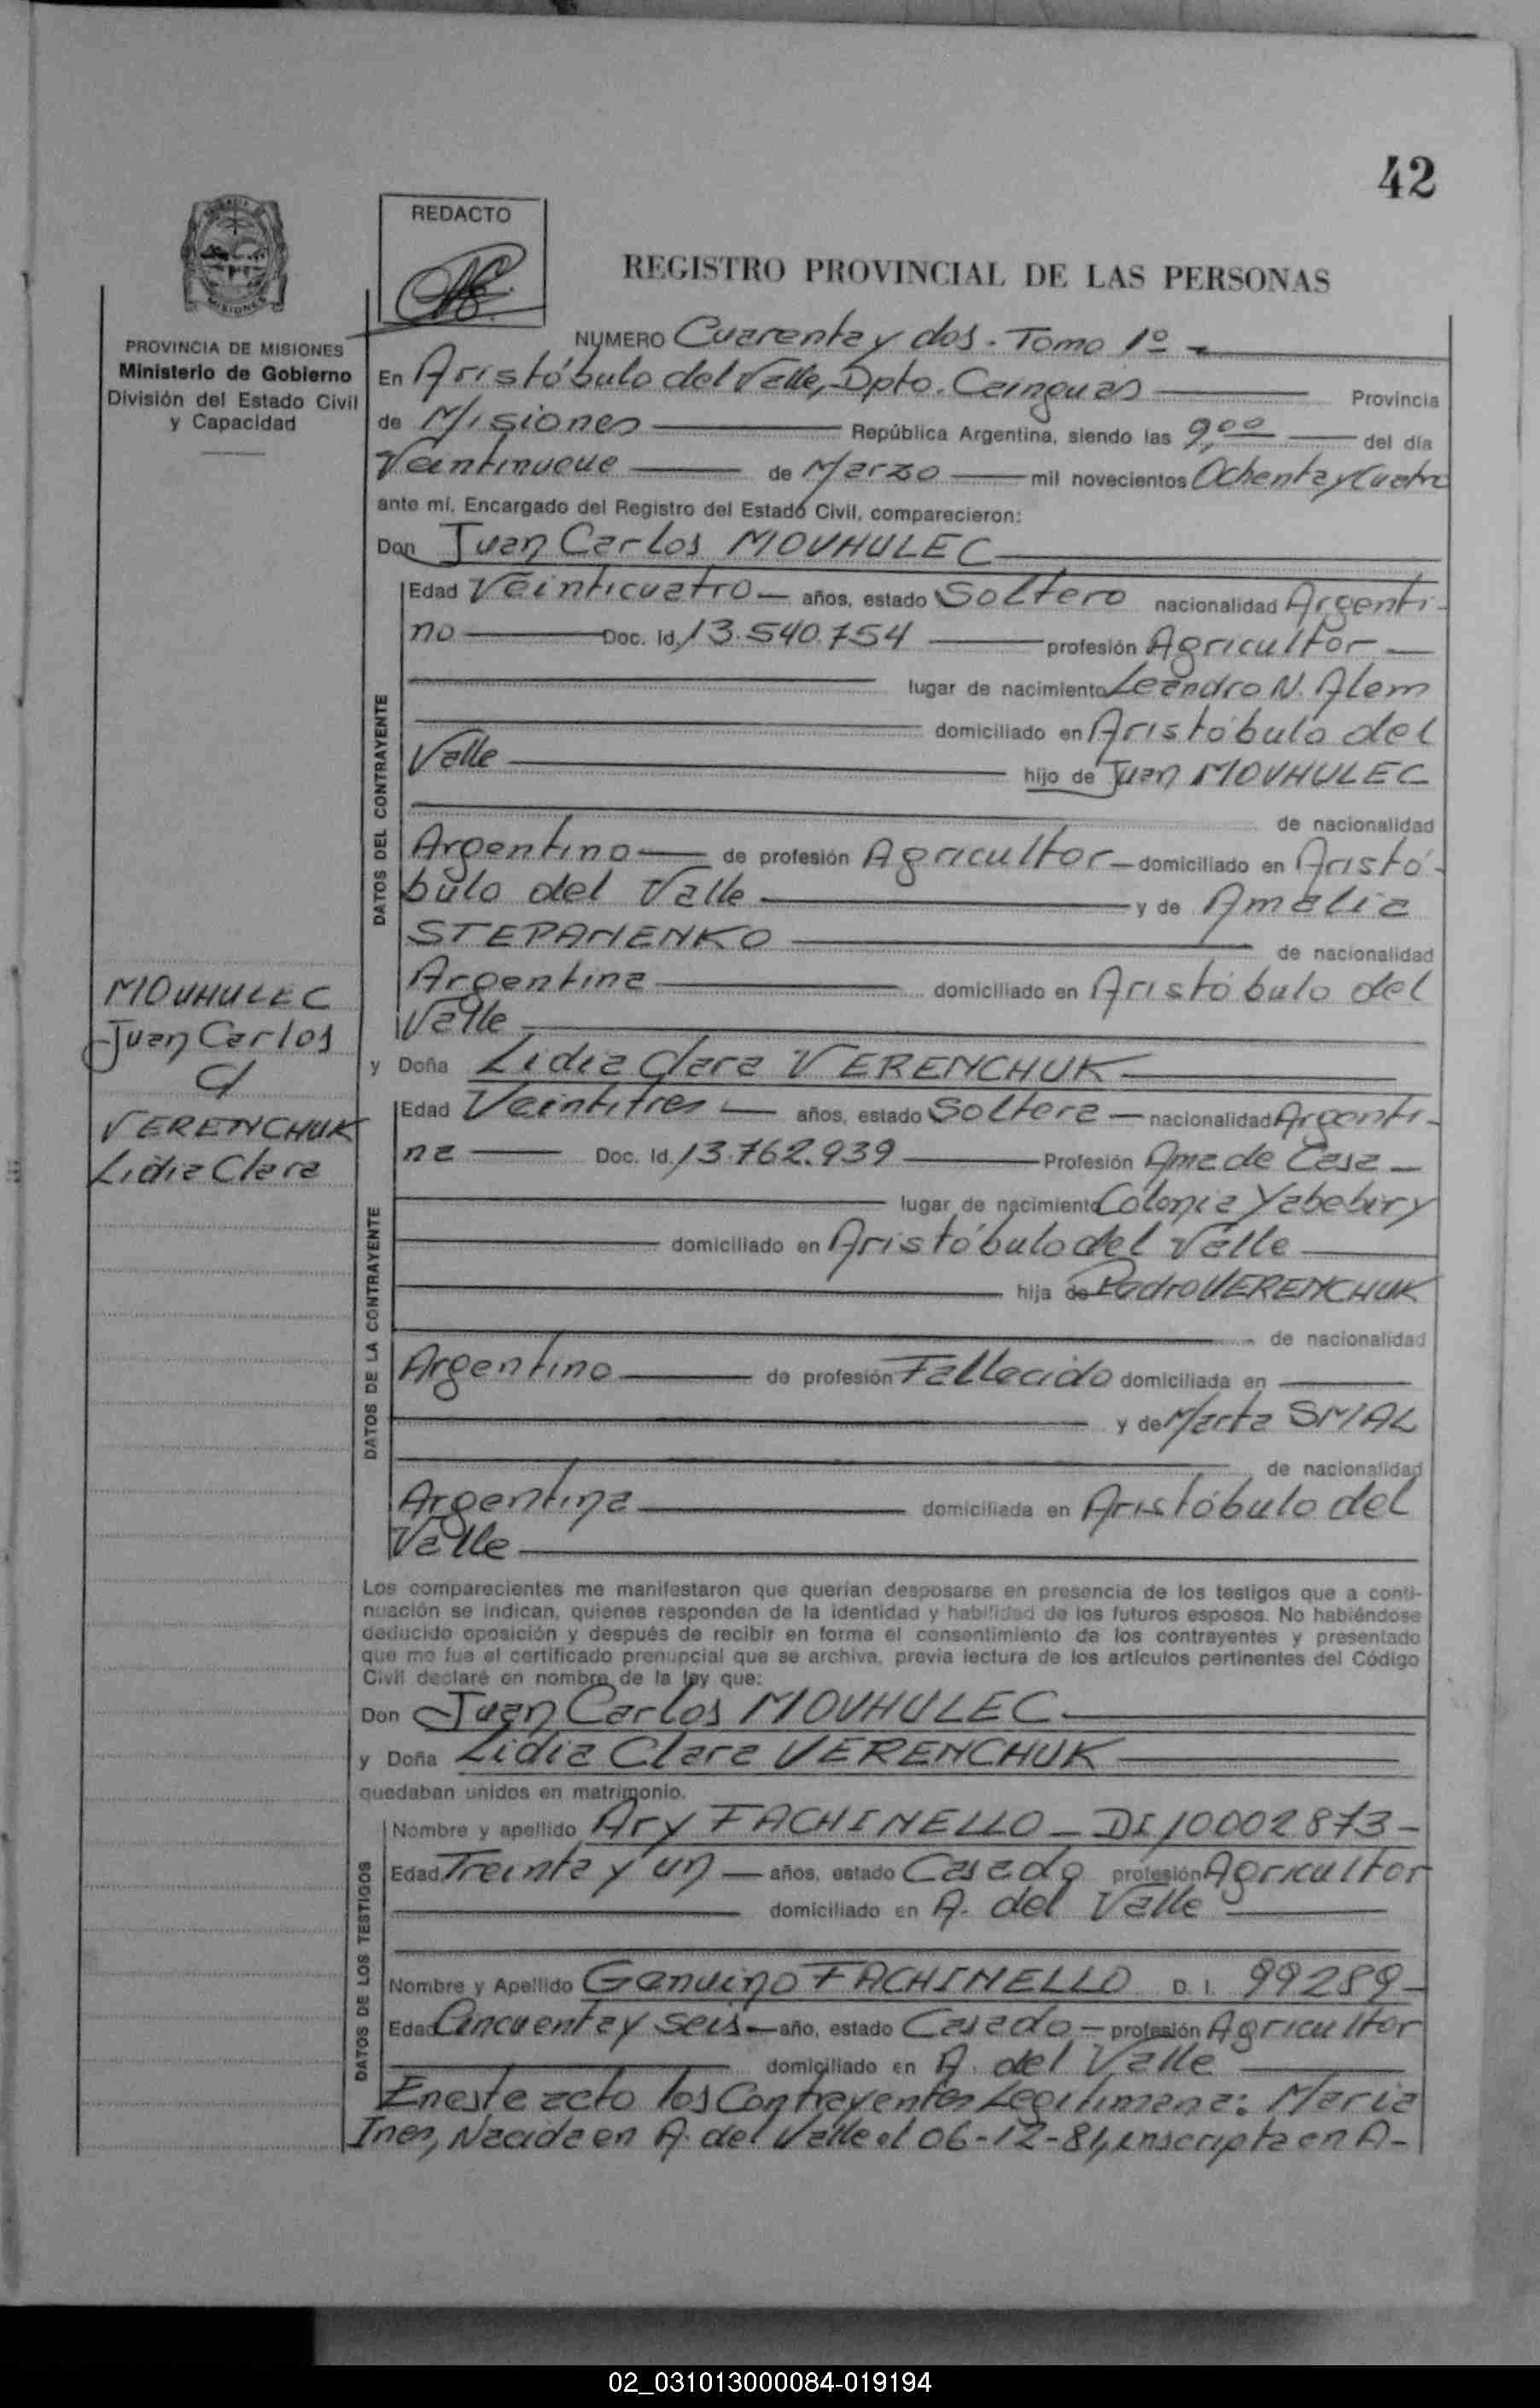 42
REDACTO
REGISTRO PROVINCIAL DE LAS PERSONAS
MISIONES
PROVINCIA DE MISIONES
Ministerio de Gobierno
División del Estado Civil
y Capacidad
NUMERO Cuarenta y dos. Tomo 1º
En Aristóbulo del Valle, Dpto. Cainguas Provincia
de Misiones República Argentina, siendo las 9,00 del día
Veintinueve de Marzo mil novecientos Ochenta y Cuatro
ante mí, Encargado del Registro del Estado Civil, comparecieron:
Don Juan Carlos MOUHULEC
DATOS DEL CONTRAYENTE
Edad Veinticuatro años, estado Soltero nacionalidad Argenti-
no Doc. Id. 13.540.754 profesión Agricultor
lugar de nacimiento Leandro N. Alem
domiciliado en Aristóbulo del
Valle hijo de Juan MOUHULEC
de nacionalidad
Argentino de profesión Agricultor domiciliado en Aristó-
bulo del Valle y de Amalia
STEPANENKO de nacionalidad
Argentina domiciliado en Aristóbulo del
Valle
MOUHULEC
Juan Carlos
c/
VERENCHUK
Lidia Clara
y Doña Lidia Clara VERENCHUK
DATOS DE LA CONTRAYENTE
Edad Veintitres años, estado Soltera nacionalidad Argenti-
na Doc. Id. 13.762.939 Profesión Ama de Casa
lugar de nacimiento Colonia Yabebiry
domiciliado en Aristóbulo del Valle
hija de Pedro VERENCHUK
de nacionalidad
Argentino de profesión Fallecido domiciliada en
y de Marta SMIAL
de nacionalidad
Argentina domiciliada en Aristóbulo del
Valle
Los comparecientes me manifestaron que querían desposarse en presencia de los testigos que a conti-
nuación se indican, quienes responden de la identidad y habilidad de los futuros esposos. No habiéndose
deducido oposición y después de recibir en forma el consentimiento de los contrayentes y presentado
que me fue el certificado prenupcial que se archiva, previa lectura de los artículos pertinentes del Código
Civil declaré en nombre de la ley que:
Don Juan Carlos MOUHULEC
y Doña Lidia Clara VERENCHUK
quedaban unidos en matrimonio.
DATOS DE LOS TESTIGOS
Nombre y apellido Ary FACHINELLO - DI 10002873-
Edad Treinta y un años, estado Casado profesión Agricultor
domiciliado en A. del Valle
Nombre y Apellido Genuino FACHINELLO D. I. 99289-
Edad Cincuenta y seis año, estado Casado profesión Agricultor
domiciliado en A. del Valle
En este acto los Contrayentes Legitiman a: Maria
Ines, Nacida en A. del Valle el 06-12-81, inscripta en A-
02_031013000084-019194